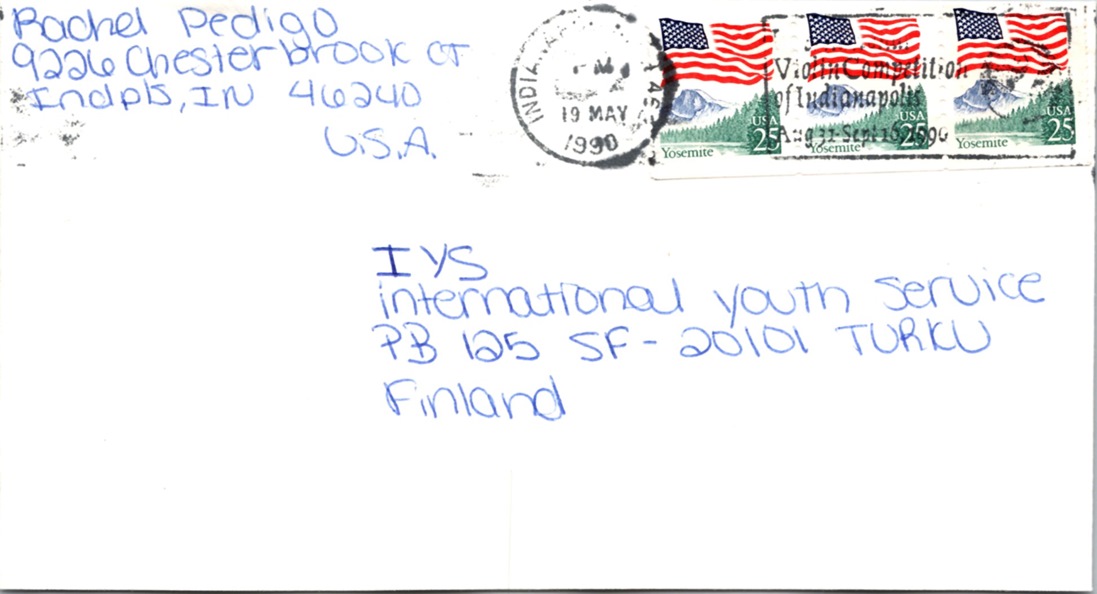 Rachel Pedigo
9226 Chesterbrook CT
Indpls, IN 46240
U.S.A.
19 MAY
1990
Violin Competition
of Indianapolis
Aug 31-Sept 16, 1990
Yosemite
USA
25
Yosemite
USA
25
Yosemite
USA
25
IYS
international youth service
PB 125 SF-20101 TURKU
Finland